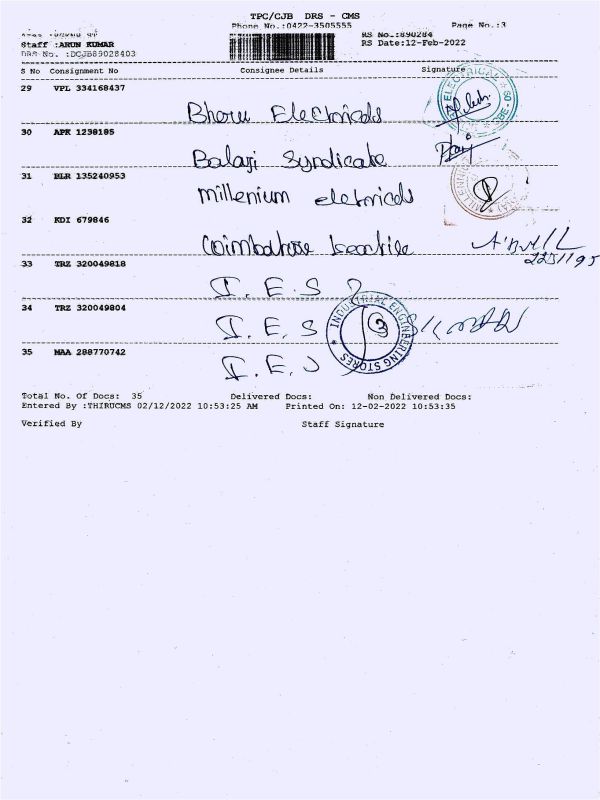 TPC/CJB DRS - CMS
Phone No.:0422-3505555 Page No.:3
RS No.:890284
Staff :ARUN KUMAR RS Date:12-Feb-2022
DRS No. :DCJB89028403
S No Consignment No Consignee Details Signature
29 VPL 334168437 Bhoru Electricals
30 APK 1238185 Balaji Syndicate
31 BLR 135240953 millenium eletricals
32 KDI 679846 Coimbatore
33 TRZ 320049818 I.E.S
34 TRZ 320049804 I.E.S
INDUSTRIAL ENGINEERING STORES
35 MAA 288770742 I.E.S
Total No. Of Docs: 35 Delivered Docs: Non Delivered Docs:
Entered By :THIRUCMS 02/12/2022 10:53:25 AM Printed On: 12-02-2022 10:53:35
Verified By Staff Signature